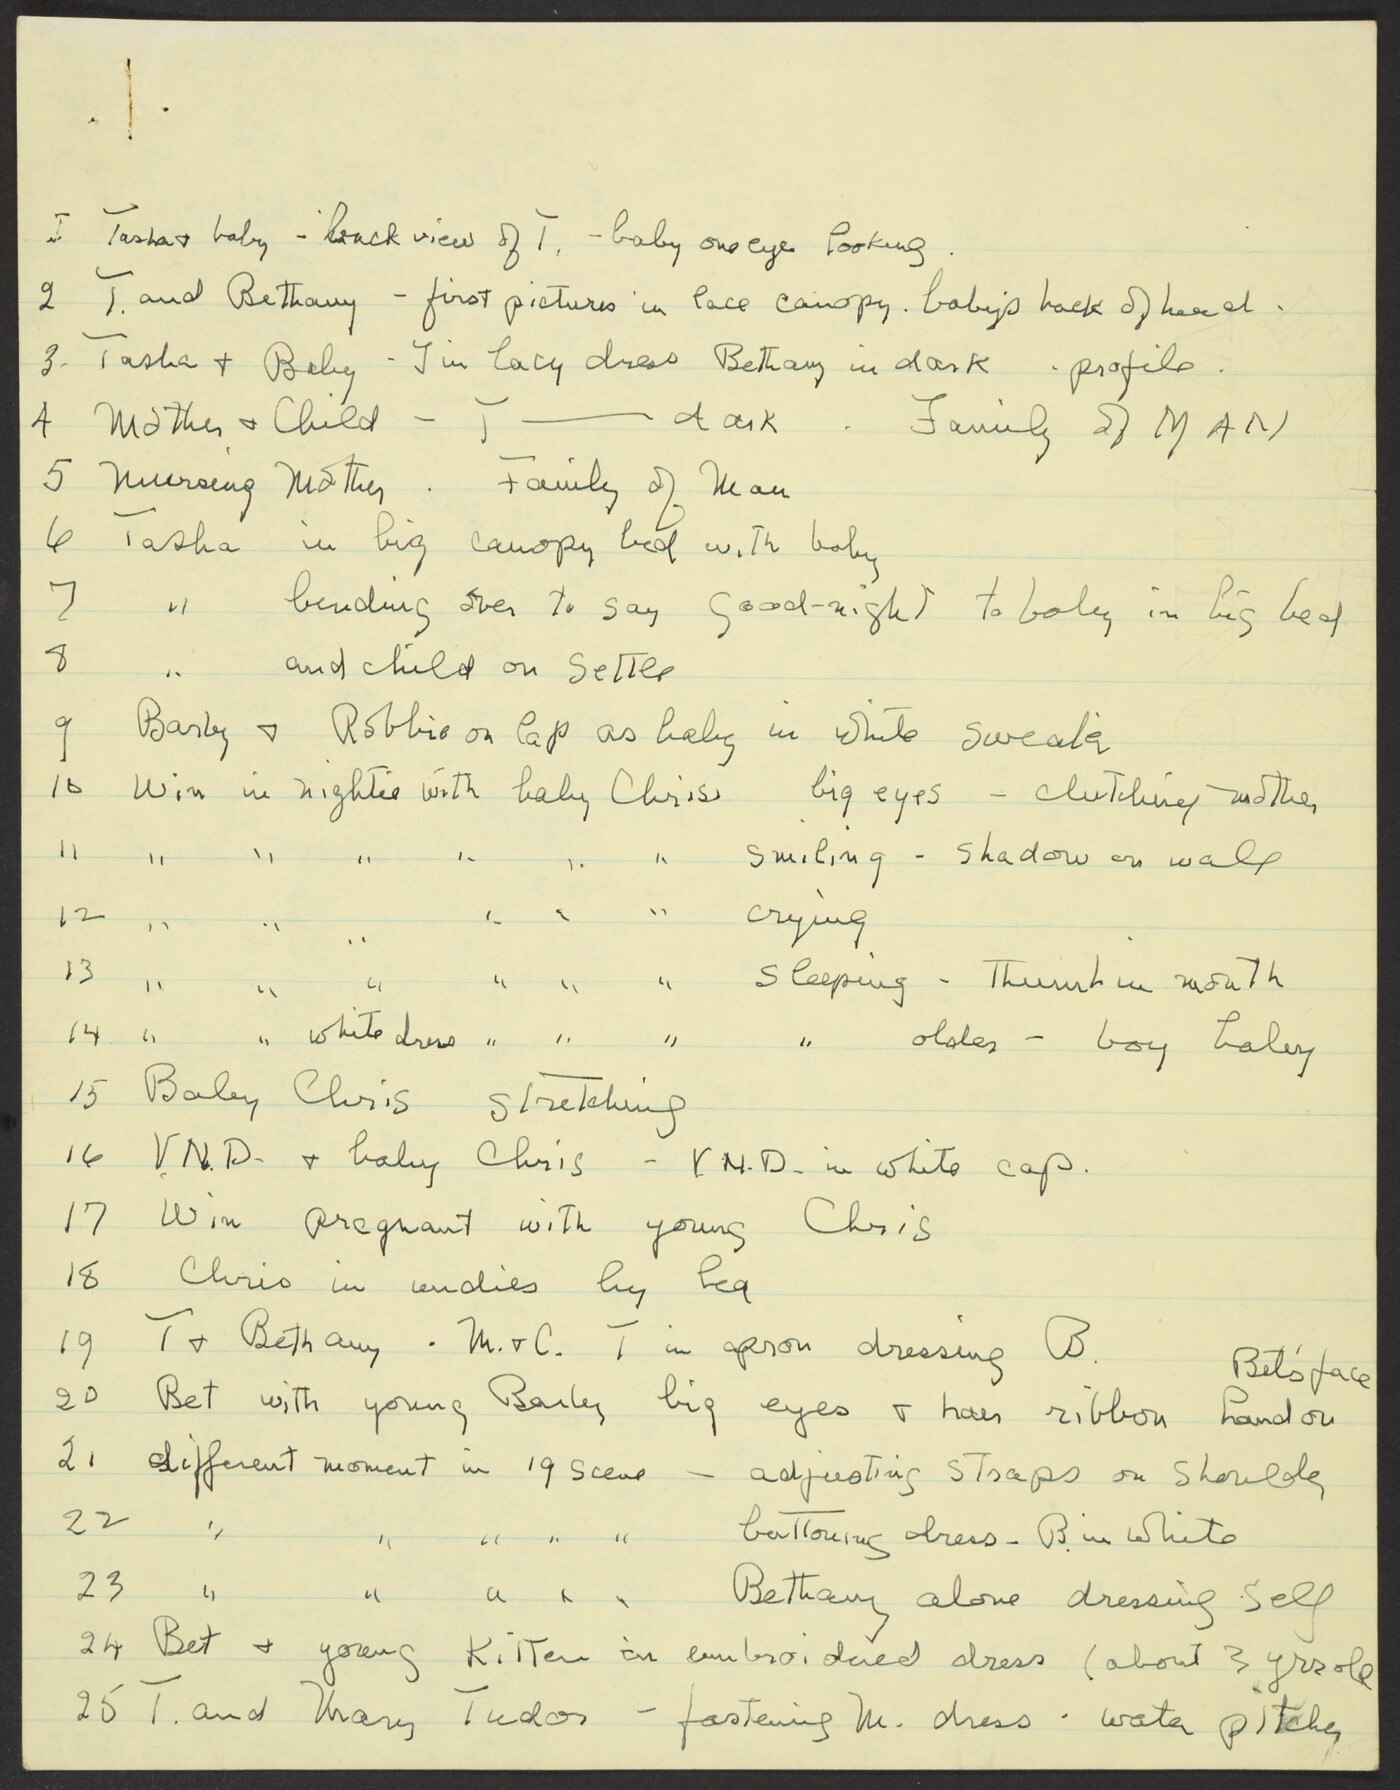 1 Tasha & baby - back view of T. - baby one eye looking.
2 T. and Bethany - first pictures in lace canopy. baby's back of head.
3. Tasha & Baby - T in lacy dress Bethany in dark - profile.
4 Mother & Child - T —— dark . Family of MAN
5 Nursing Mother . Family of Man
6 Tasha in big canopy bed with baby
7 " bending over to say good-night to baby in big bed
8 " and child on settle
9 & Robbie on lap as baby in white sweater
10 Win in nightie with baby Chris big eyes - clutching mother
11 " " " " " " smiling - shadow on wall
12 " " " " " " crying
13 " " " " " " sleeping - Thumb in mouth
14 " " white dress " " " " older - boy baby
15 Baby Chris stretching
16 V.N.D. & baby Chris - V.N.D. in white cap.
17 Win pregnant with young Chris
18 Chris in undies by
19 T & Bethany . M. & C. T in apron dressing B.
Bet's face
20 Bet with young big eyes & hair ribbon hand on
21 different moment in 19 scene - adjusting straps on shoulder
22 " " " " " buttoning dress - B. in white
23 " " " " " Bethany alone dressing self
24 Bet & young Kitten in embroidered dress (about 3 yrs old
25 T. and Mary Tudor - fastening M. dress . water pitcher